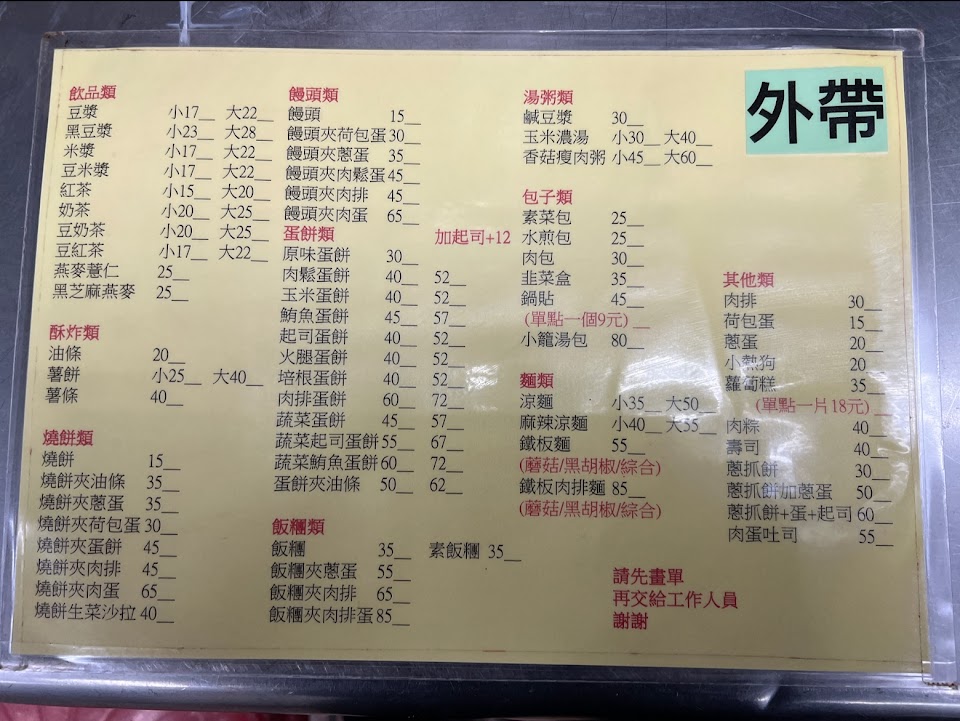 外帶
飲品類
豆漿 小17__ 大22__
黑豆漿 小23__ 大28__
米漿 小17__ 大22__
豆米漿 小17__ 大22__
紅茶 小15__ 大20__
奶茶 小20__ 大25__
豆奶茶 小20__ 大25__
豆紅茶 小17__ 大22__
燕麥薏仁 25__
黑芝麻燕麥 25__
酥炸類
油條 20__
薯餅 小25__ 大40__
薯條 40__
燒餅類
燒餅 15__
燒餅夾油條 35__
燒餅夾蔥蛋 35__
燒餅夾荷包蛋30__
燒餅夾蛋餅 45__
燒餅夾肉排 45__
燒餅夾肉蛋 65__
燒餅生菜沙拉40__
饅頭類
饅頭 15__
饅頭夾荷包蛋30__
饅頭夾蔥蛋 35__
饅頭夾肉鬆蛋45__
饅頭夾肉排 45__
饅頭夾肉蛋 65__
蛋餅類 加起司+12
原味蛋餅 30__
肉鬆蛋餅 40__ 52__
玉米蛋餅 40__ 52__
鮪魚蛋餅 45__ 57__
起司蛋餅 40__ 52__
火腿蛋餅 40__ 52__
培根蛋餅 40__ 52__
肉排蛋餅 60__ 72__
蔬菜蛋餅 45__ 57__
蔬菜起司蛋餅55__ 67__
蔬菜鮪魚蛋餅60__ 72__
蛋餅夾油條 50__ 62__
飯糰類
飯糰 35__ 素飯糰 35__
飯糰夾蔥蛋 55__
飯糰夾肉排 65__
飯糰夾肉排蛋85__
湯粥類
鹹豆漿 30__
玉米濃湯 小30__ 大40__
香菇瘦肉粥 小45__ 大60__
包子類
素菜包 25__
水煎包 25__
肉包 30__
韭菜盒 35__
鍋貼 45__
(單點一個9元)__
小籠湯包 80__
麵類
涼麵 小35__ 大50__
麻辣涼麵 小40__ 大55__
鐵板麵 55__
(蘑菇/黑胡椒/綜合)
鐵板肉排麵 85__
(蘑菇/黑胡椒/綜合)
其他類
肉排 30__
荷包蛋 15__
蔥蛋 20__
小熱狗 20__
蘿蔔糕 35__
(單點一片18元)__
肉粽 40__
壽司 40__
蔥抓餅 30__
蔥抓餅加蔥蛋 50__
蔥抓餅+蛋+起司60__
肉蛋吐司 55__
請先畫單
再交給工作人員
謝謝